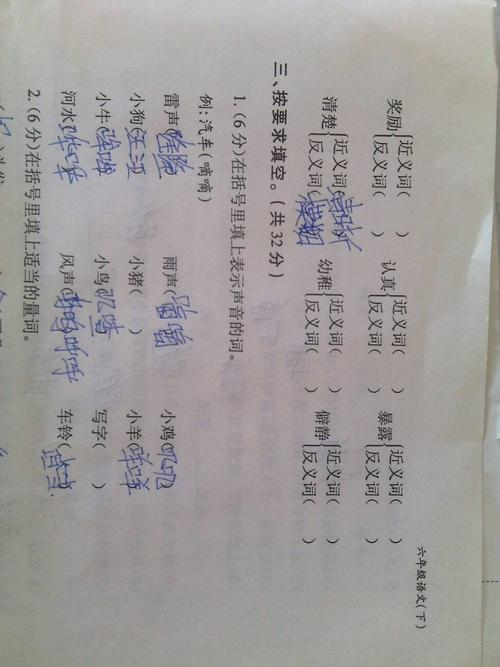 六年级语文(下)
奖励{近义词(　　) 反义词(　　) 认真{近义词(　　) 反义词(　　) 暴露{近义词(　　) 反义词(　　)
清楚{近义词(清晰) 反义词(模糊) 幼稚{近义词(　　) 反义词(　　) 僻静{近义词(　　) 反义词(　　)
三、按要求填空。(共32分)
1.(6分)在括号里填上表示声音的词。
例:汽车(嘀嘀)
雷声(隆隆) 雨声( 小鸡(叽叽)
小狗(汪汪) 小猪(　　) 小羊(咩咩)
小牛( 小鸟( 写字(　　)
河水(哗哗) 风声( 车铃(
2.(6分)在括号里填上适当的量词。